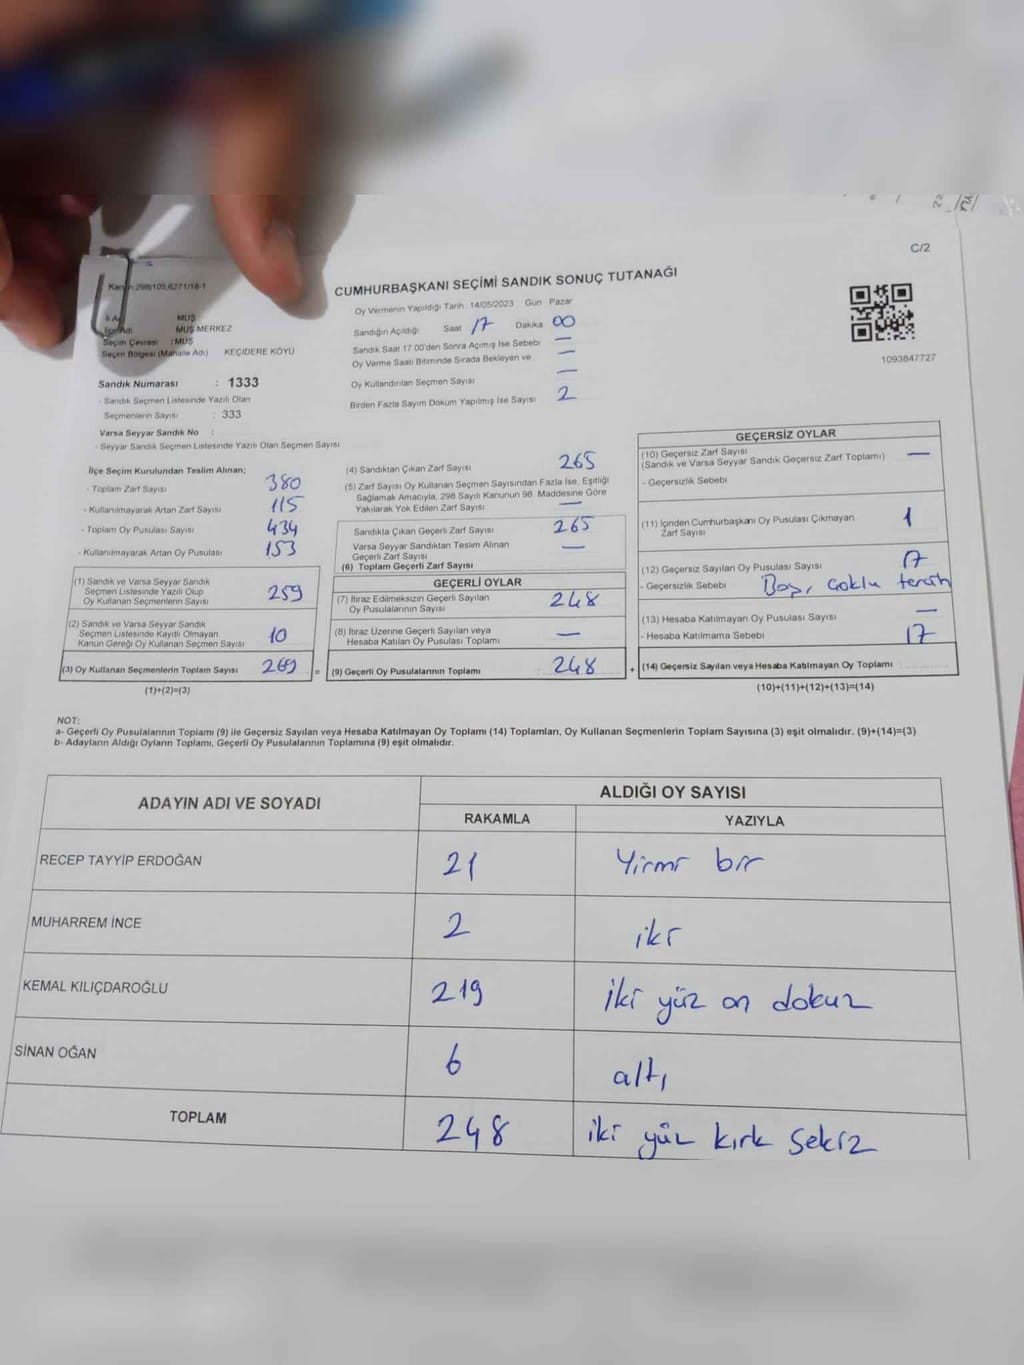 C/2
CUMHURBAŞKANI SEÇİMİ SANDIK SONUÇ TUTANAĞI
MUŞ
İlçe Adı MUŞ MERKEZ
Seçim Çevresi :MUŞ
Seçim Bölgesi (Mahalle Adı) KEÇİDERE KÖYÜ
Sandık Numarası : 1333
- Sandık Seçmen Listesinde Yazılı Olan
Seçmenlerin Sayısı : 333
Varsa Seyyar Sandık No :
- Seyyar Sandık Seçmen Listesinde Yazılı Olan Seçmen Sayısı
Oy Vermenin Yapıldığı Tarih 14/05/2023 Gün Pazar
Sandığın Açıldığı Saat 17 Dakika 00
Sandık Saat 17.00'den Sonra Açımış İse Sebebi —
Oy Verme Saati Bitiminde Sırada Bekleyen ve —
Oy Kullandırılan Seçmen Sayısı —
Birden Fazla Sayım Döküm Yapılmış İse Sayısı 2
1093847727
İlçe Seçim Kurulundan Teslim Alınan;
- Toplam Zarf Sayısı 380
- Kullanılmayarak Artan Zarf Sayısı 115
- Toplam Oy Pusulası Sayısı 434
- Kullanılmayarak Artan Oy Pusulası 153
(1) Sandık ve Varsa Seyyar Sandık
Seçmen Listesinde Yazılı Olup
Oy Kullanan Seçmenlerin Sayısı 259
(2) Sandık ve Varsa Seyyar Sandık
Seçmen Listesinde Kayıtlı Olmayan
Kanun Gereği Oy Kullanan Seçmen Sayısı 10
(3) Oy Kullanan Seçmenlerin Toplam Sayısı 269 =
(1)+(2)=(3)
(4) Sandıktan Çıkan Zarf Sayısı 265
(5) Zarf Sayısı Oy Kullanan Seçmen Sayısından Fazla İse, Eşitliği
Sağlamak Amacıyla, 298 Sayılı Kanunun 98. Maddesine Göre
Yakılarak Yok Edilen Zarf Sayısı —
Sandıkta Çıkan Geçerli Zarf Sayısı 265
Varsa Seyyar Sandıktan Teslim Alınan
Geçerli Zarf Sayısı —
(6) Toplam Geçerli Zarf Sayısı
GEÇERLİ OYLAR
(7) İtiraz Edilmeksizin Geçerli Sayılan
Oy Pusulalarının Sayısı 248
(8) İtiraz Üzerine Geçerli Sayılan veya
Hesaba Katılan Oy Pusulası Toplamı —
(9) Geçerli Oy Pusulalarının Toplamı 248 +
GEÇERSİZ OYLAR
(10) Geçersiz Zarf Sayısı —
(Sandık ve Varsa Seyyar Sandık Geçersiz Zarf Toplamı)
- Geçersizlik Sebebi
(11) İçinden Cumhurbaşkanı Oy Pusulası Çıkmayan 1
Zarf Sayısı
(12) Geçersiz Sayılan Oy Pusulası Sayısı 17
- Geçersizlik Sebebi Boş, çoklu tercih
(13) Hesaba Katılmayan Oy Pusulası Sayısı —
- Hesaba Katılmama Sebebi 17
(14) Geçersiz Sayılan veya Hesaba Katılmayan Oy Toplamı
(10)+(11)+(12)+(13)=(14)
NOT:
a- Geçerli Oy Pusulalarının Toplamı (9) ile Geçersiz Sayılan veya Hesaba Katılmayan Oy Toplamı (14) Toplamları, Oy Kullanan Seçmenlerin Toplam Sayısına (3) eşit olmalıdır. (9)+(14)=(3)
b- Adayların Aldığı Oyların Toplamı, Geçerli Oy Pusulalarının Toplamına (9) eşit olmalıdır.
ADAYIN ADI VE SOYADI ALDIĞI OY SAYISI
RAKAMLA YAZIYLA
RECEP TAYYİP ERDOĞAN 21 Yirmi bir
MUHARREM İNCE 2 iki
KEMAL KILIÇDAROĞLU 219 iki yüz on dokuz
SİNAN OĞAN 6 altı
TOPLAM 248 iki yüz kırk sekiz